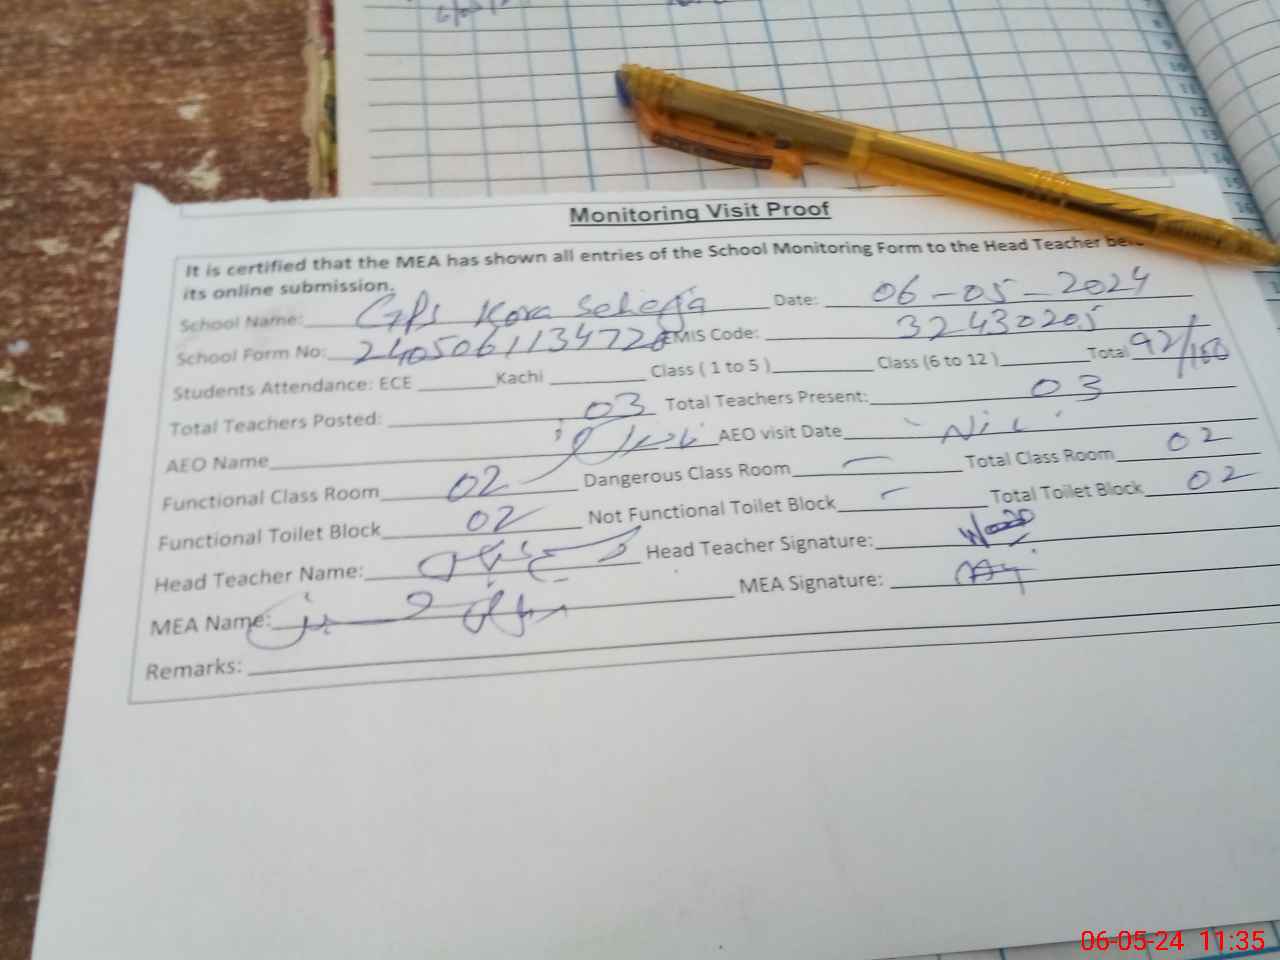 Monitoring Visit Proof
It is certified that the MEA has shown all entries of the School Monitoring Form to the Head Teacher
its online submission.
School Name: GPS Kora Date: 06-05-2024
School Form No: EMIS Code: 32430205
Students Attendance: ECE Kachi Class ( 1 to 5 ) Class (6 to 12 ) Total 92/160
Total Teachers Posted: 03 Total Teachers Present: 03
AEO Name AEO visit Date Nil
Functional Class Room 02 Dangerous Class Room — Total Class Room 02
Functional Toilet Block 02 Not Functional Toilet Block — Total Toilet Block 02
Head Teacher Name: Head Teacher Signature:
MEA Name: MEA Signature:
Remarks:
06-05-24 11:35